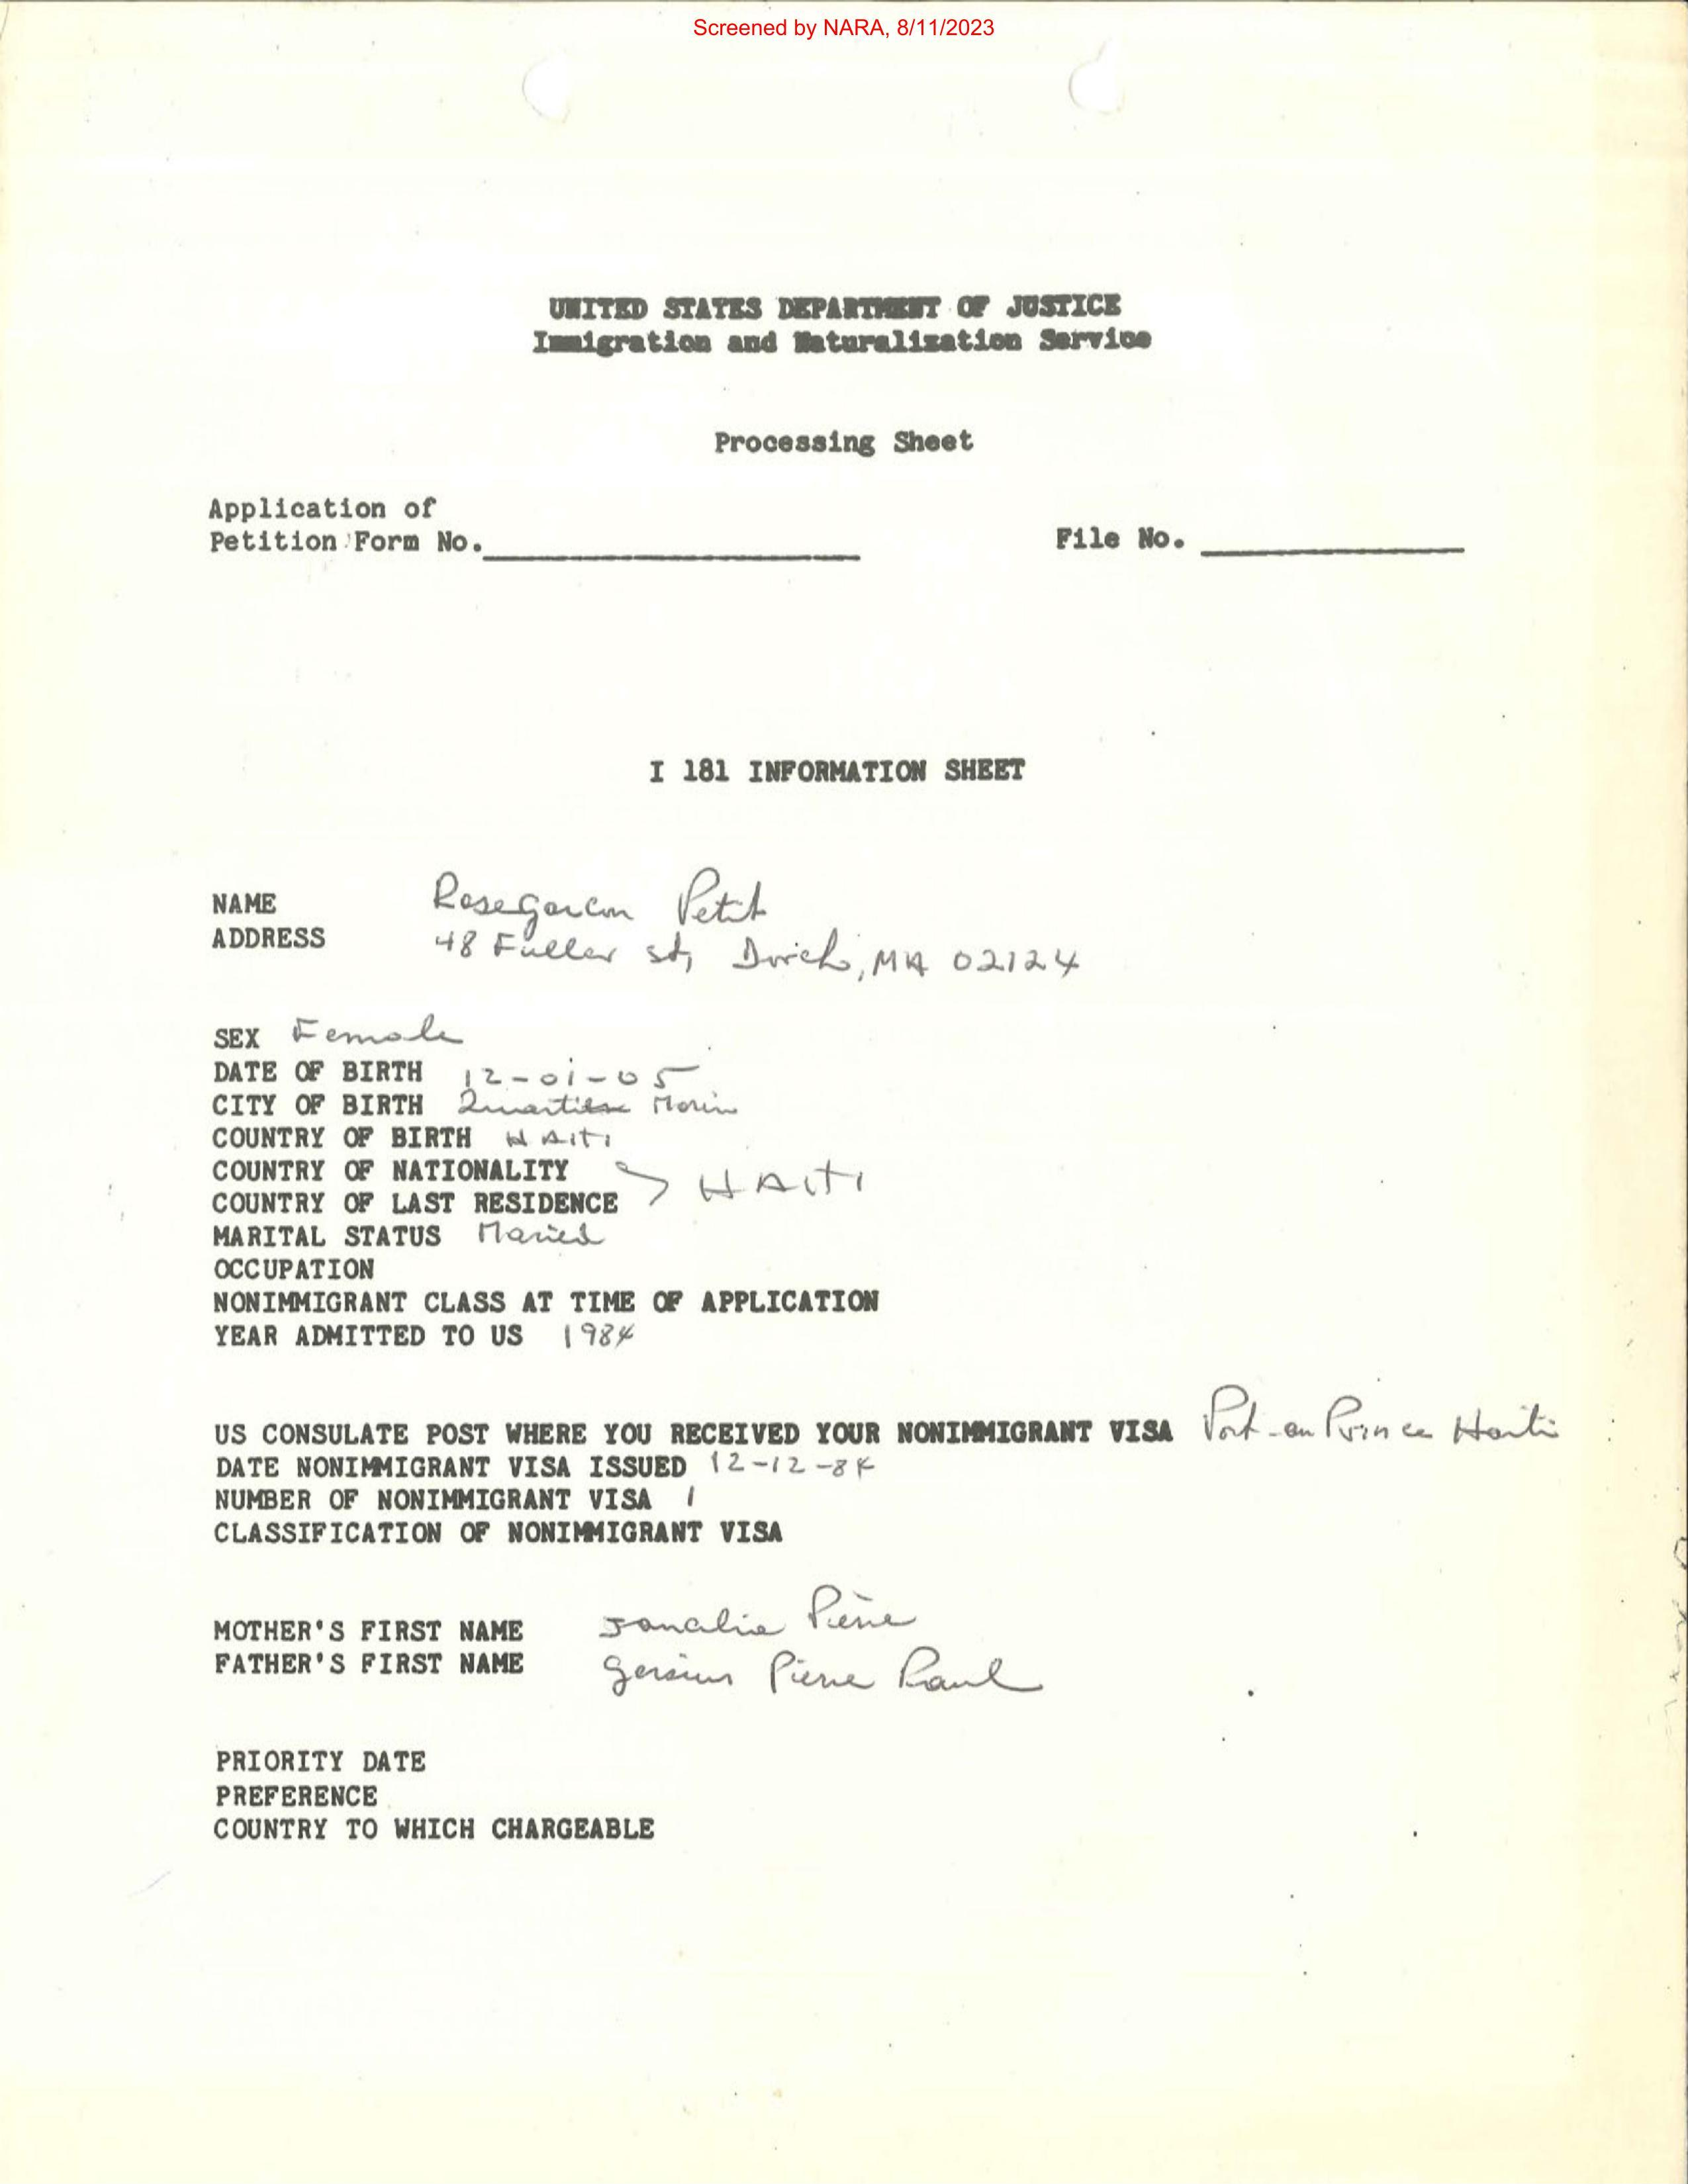 Screened by NARA, 8/11/2023
UNITED STATES DEPARTMENT OF JUSTICE
Immigration and Naturalization Service
Processing Sheet
Application of
Petition Form No.
File No.
I 181 INFORMATION SHEET
NAME Rosegarcon Petit
ADDRESS 48 Fuller st, Dorch, MA 02124
SEX Female
DATE OF BIRTH 12-01-05
CITY OF BIRTH Morin
COUNTRY OF BIRTH HAiti
COUNTRY OF NATIONALITY
HAiti
COUNTRY OF LAST RESIDENCE
MARITAL STATUS Maried
OCCUPATION
NONIMMIGRANT CLASS AT TIME OF APPLICATION
YEAR ADMITTED TO US 1984
US CONSULATE POST WHERE YOU RECEIVED YOUR NONIMMIGRANT VISA Port-au Prince Haiti
DATE NONIMMIGRANT VISA ISSUED 12-12-84
NUMBER OF NONIMMIGRANT VISA 1
CLASSIFICATION OF NONIMMIGRANT VISA
MOTHER'S FIRST NAME Pierre
FATHER'S FIRST NAME Pierre Paul
PRIORITY DATE
PREFERENCE
COUNTRY TO WHICH CHARGEABLE